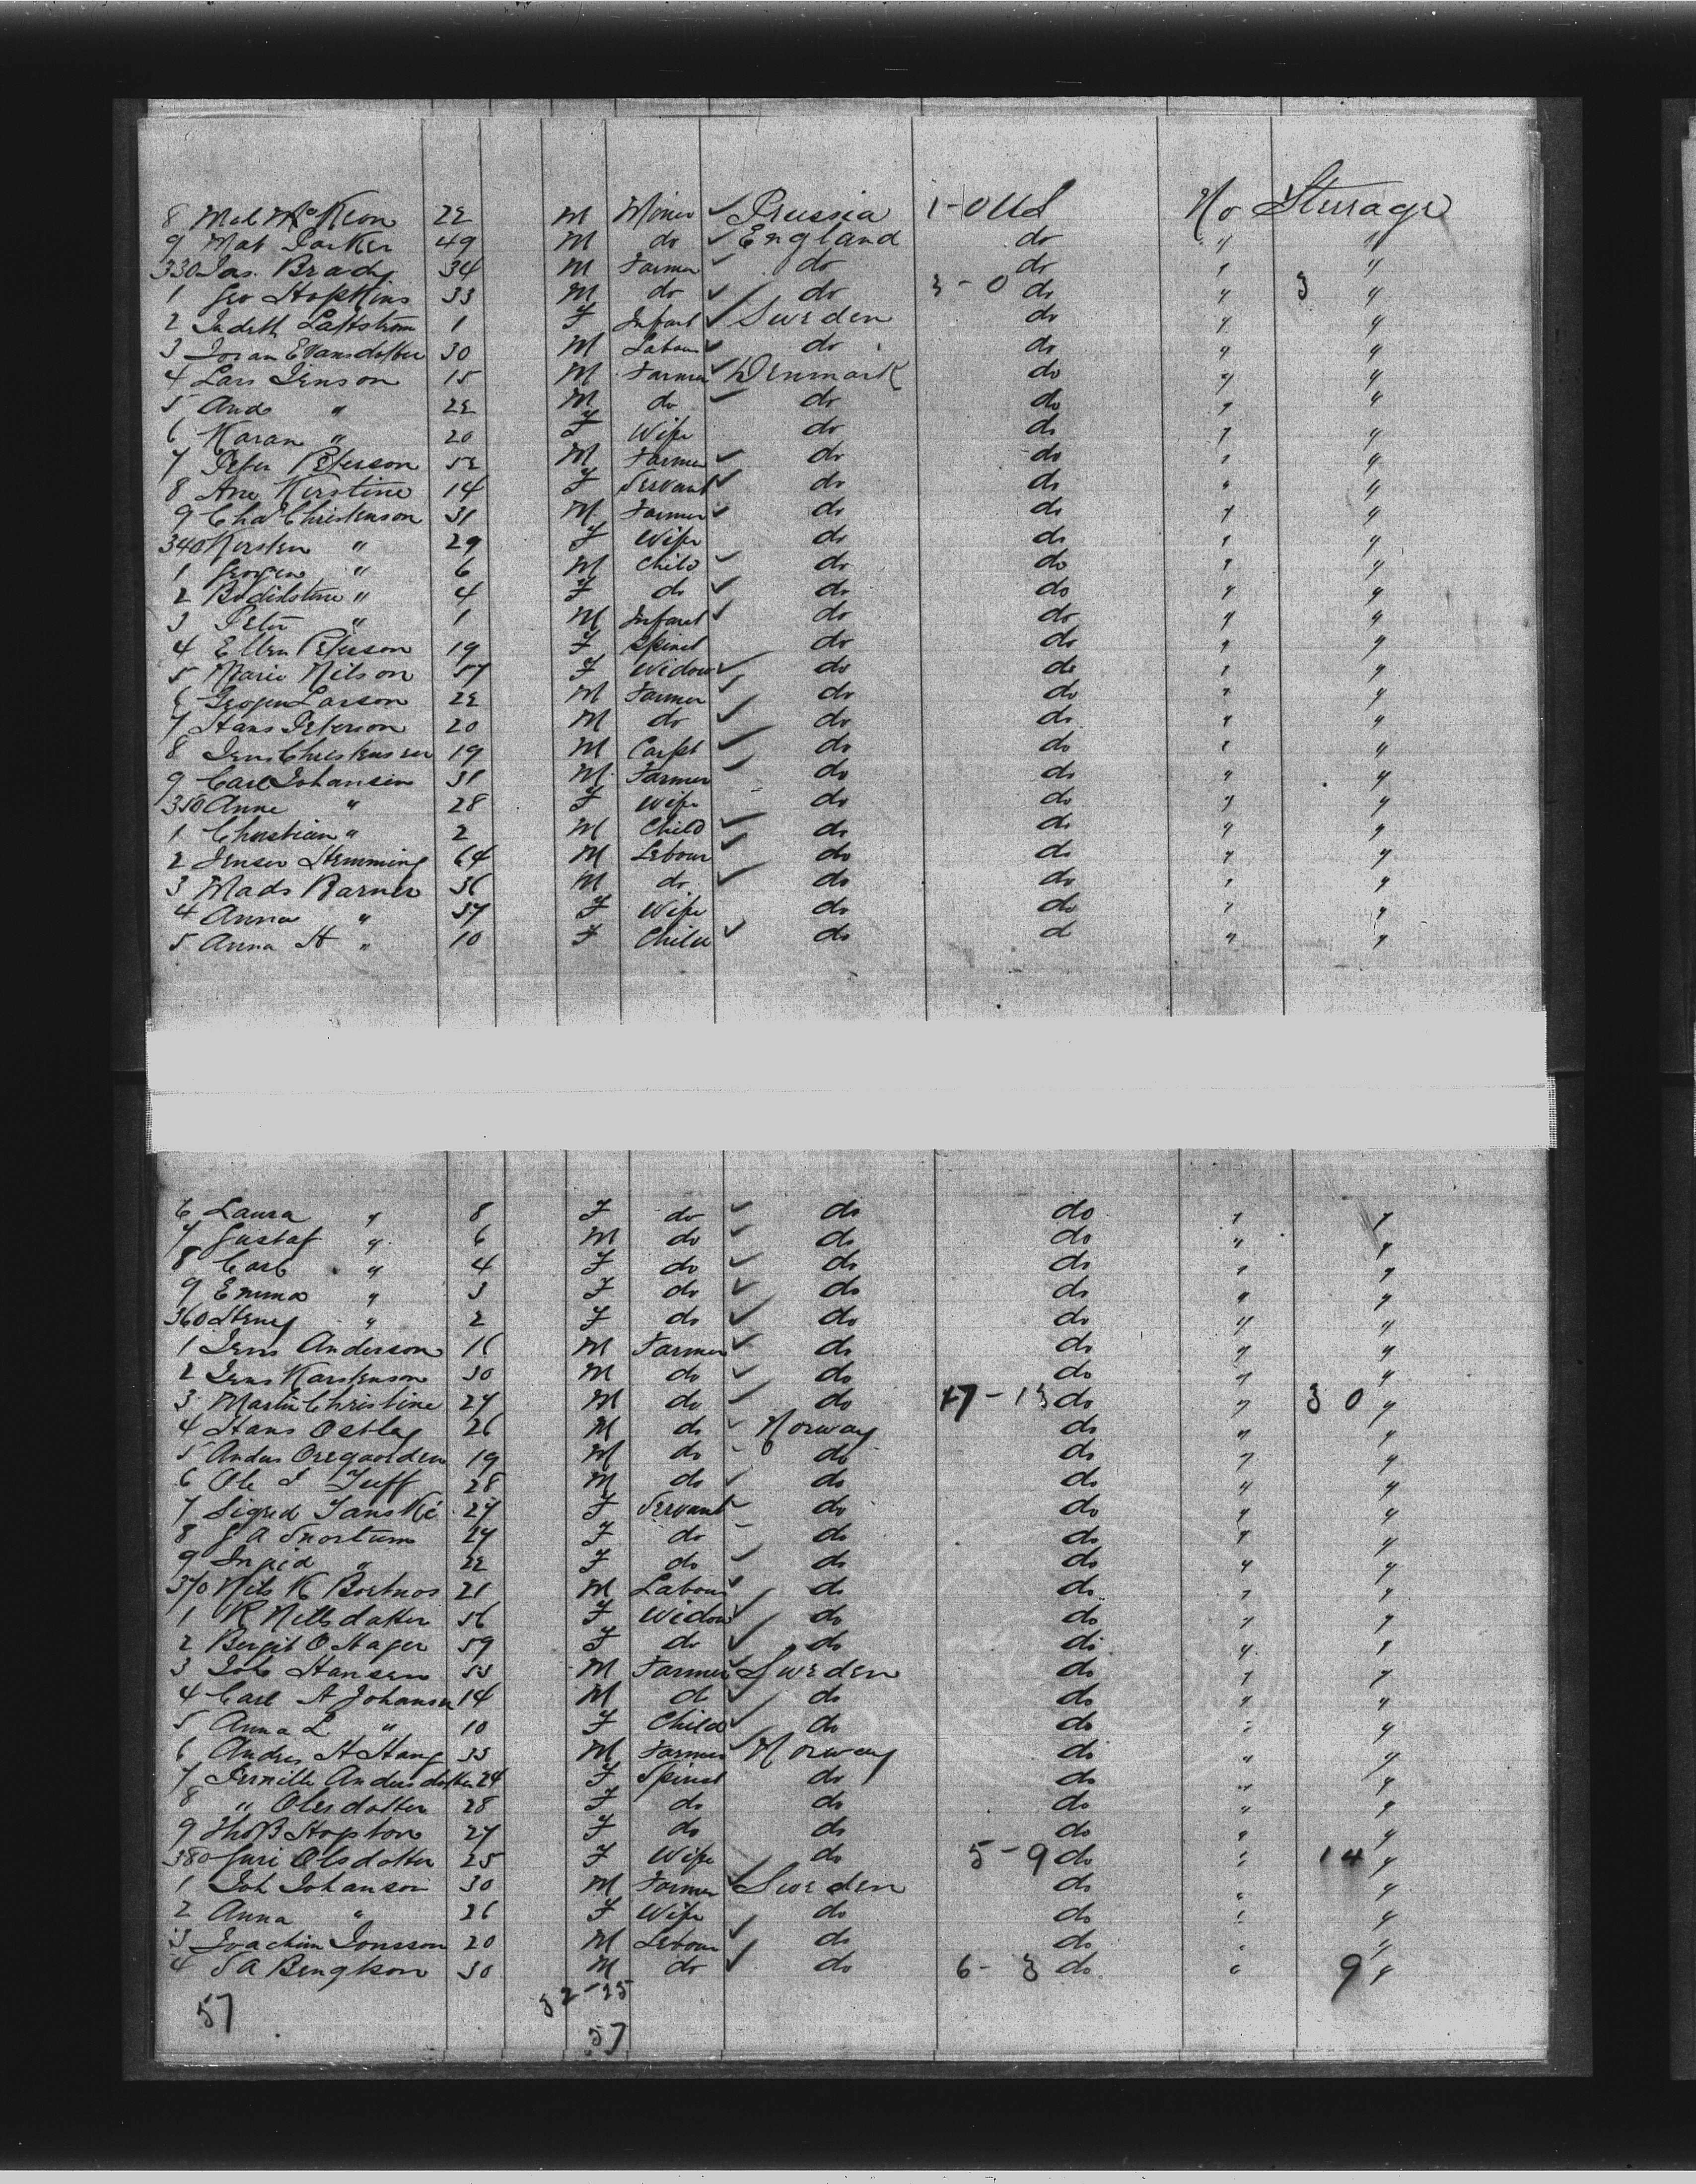 8 Mal McKeon 22 M Miner ✓ Prussia 1-0 US No Sturage
9 Mat Parker 49 M do ✓ England do " "
330 Jas. Brady 34 M Farmer ✓ do do " "
1 Geo Hopkins 33 M do ✓ do 3-0 do " 3 "
2 Judith 1 F Infant ✓ Sweden do " "
3 30 M Labour ✓ do do " "
4 Lars Jenson 15 M Farmer ✓ Denmark do " "
5 And " 22 M do ✓ do do " "
6 Karan " 20 F Wife do do " "
7 Peter Peterson 52 M Farmer ✓ do do " "
8 Ane Kirstine 14 F Servant ✓ do do " "
9 Cha Christenson 31 M Farmer ✓ do do " "
340 Kirsten " 29 F Wife do do " "
1 Jorgen " 6 M Child ✓ do do " "
2 " 4 F do ✓ do do " "
3 Peter " 1 M Infant ✓ do do " "
4 Ellen Peterson 19 F Spinst do do " "
5 Marie Nilson 57 F Widow ✓ do do " "
6 Jorgen Larson 22 M Farmer ✓ do do " "
7 Hans Peterson 20 M do ✓ do do " "
8 Jens Christensen 19 M Carpt ✓ do do " "
9 Carl Johansen 31 M Farmer ✓ do do " "
350 Anne " 28 F Wife do do " "
1 Christian " 2 M Child ✓ do do " "
2 Jenser Hemming 64 M Labour ✓ do do " "
3 Mads Barner 36 M do ✓ do do " "
4 Anna " 37 F Wife do do " "
5 Anna H " 10 F Child ✓ do d " "
6 Laura " 8 F do ✓ do do " "
7 Gustaf " 6 M do ✓ do do " "
8 " 4 F do ✓ do do " "
9 Emma " 3 F do ✓ do do " "
360 Heny " 2 F do ✓ do do " "
1 Jens Anderson 16 M Farmer ✓ do do " "
2 Jens Karstenson 30 M do ✓ do do " "
3 Martin Christine 27 M do ✓ do 17-13 do " 30 "
4 Hans 26 M do Norway do " "
5 19 M do do do " "
6 Ole 28 M do ✓ do do " "
7 Sigrid 27 F Servant do do " "
8 27 F do do do " "
9 " 22 F do ✓ do do " "
370 Nils K 21 M Labour ✓ do do " "
1 Nilsdatter 56 F Widow ✓ do do " "
2 Bergit O Hager 59 F do ✓ do do " "
3 Hansen M Farmer ✓ Sweden do " "
4 Carl A Johansen 14 M d ✓ do do " "
5 Anna L " 10 F Child ✓ do do " "
6 Andres H Hang M Farmer ✓ Norway do " "
7 Pernille Andersdotter 24 F Spinst do do " "
8 " Olesdotter 28 F do do do " "
9 Hopton 27 F do do do " "
380 Guri Olsdotter 25 F Wife do 5-9 do " 14 "
1 Joh Johanson 30 M Farmer ✓ Sweden do " "
2 Anna " 26 F Wife do do " "
3 Joachim Jonsson 20 M Labour ✓ do do " "
4 S A Bengtson 30 M do ✓ do 6-3 do " 9 "
57 32-25
57